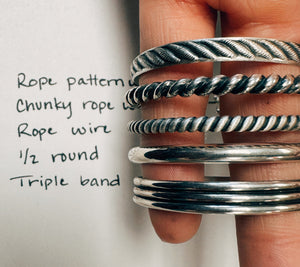 Rope pattern
Chunky rope
Rope wire
1/2 round
Triple band